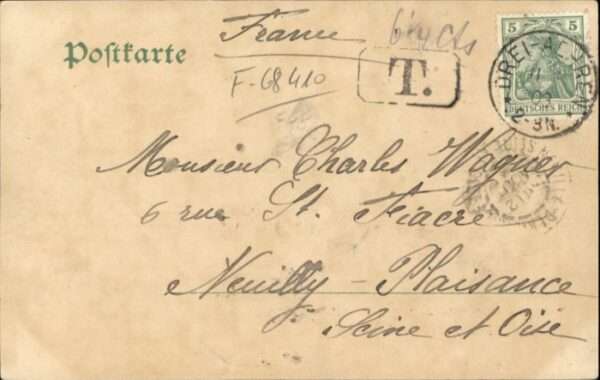 Postkarte
France
cts
F-68410
T.
5 5
DEUTSCHES REICH
DREI-AEHREN
2-3N.
Monsieur Charles Wagner
6 rue St. Fiacre
Neuilly-Plaisance
Seine et Oise